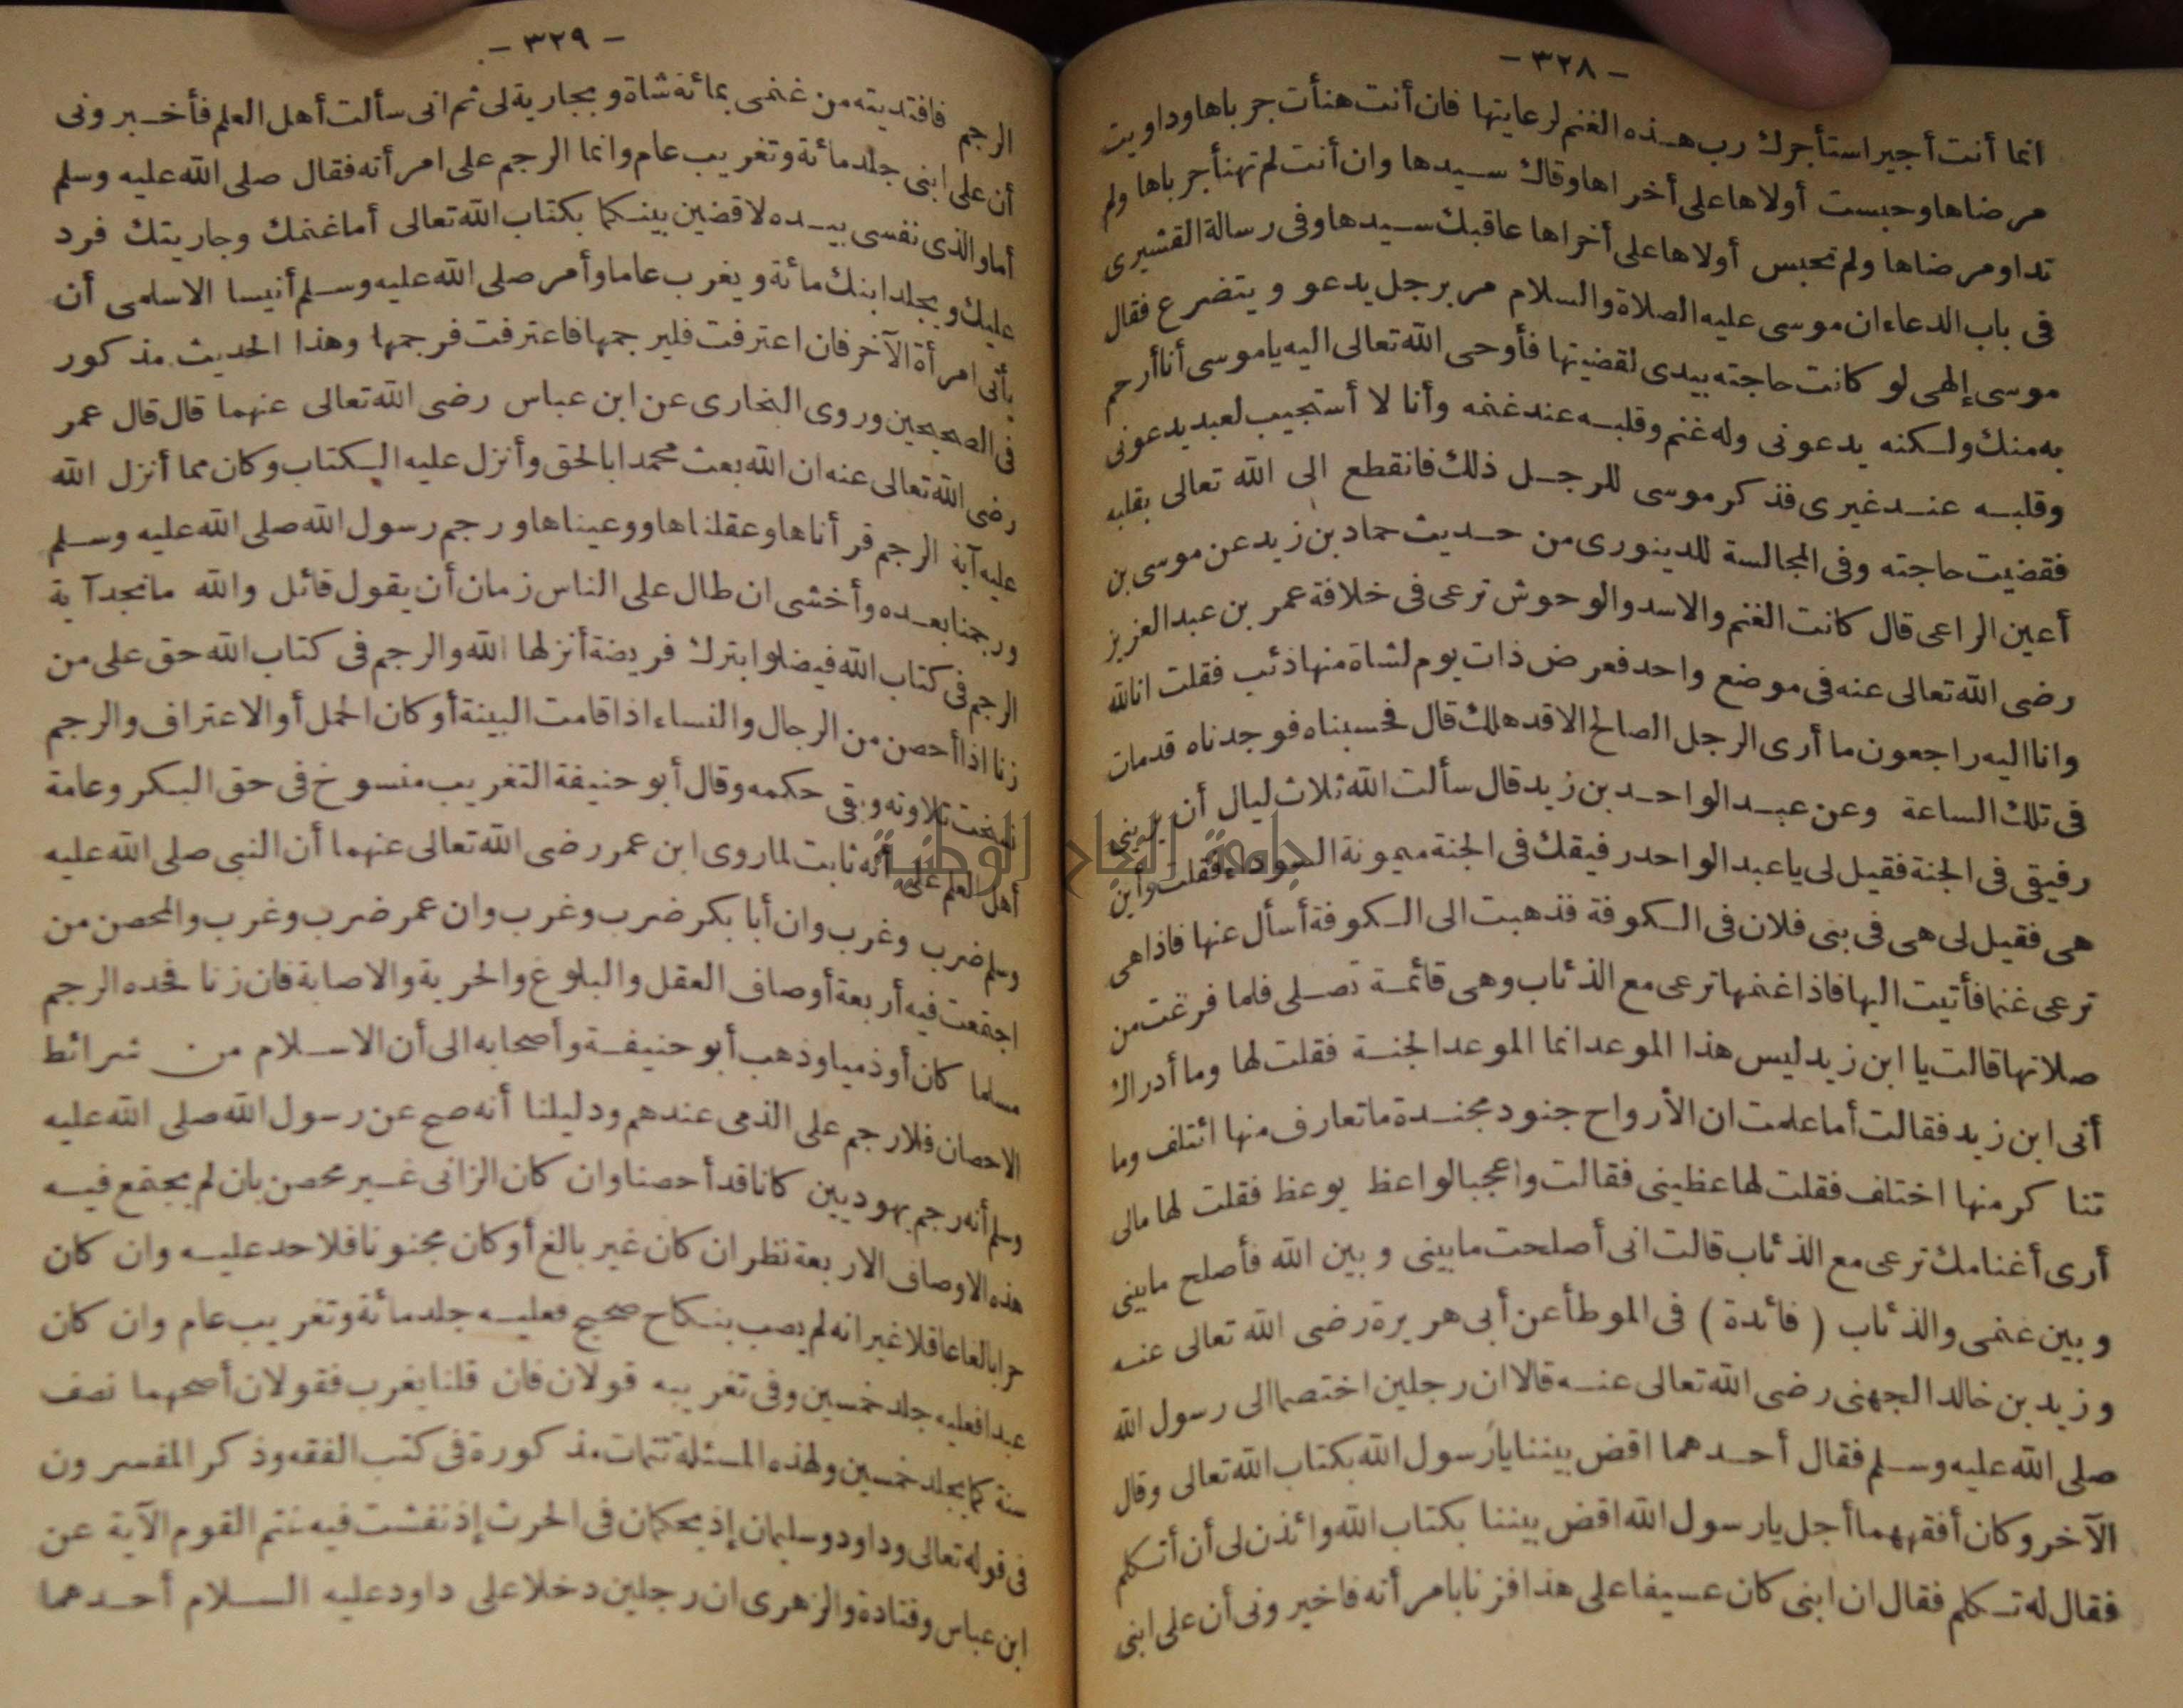 — ٣٢٨ —
انما أنت أجير استأجرك رب هـذه الغنم لرعايتها فان أنت هنأت جرباها وداويت
مرضاها وحبست أولاها على أخراها وقاك سـيدها وان أنت لم تهنأ جرباها ولم
تداو مرضاها ولم تحبس أولاها على أخراها عاقبك سـيدها وفى رسالة القشيرى
فى باب الدعاء ان موسى عليه الصلاة والسلام مر برجل يدعو ويتضرع فقال
موسى إلهى لو كانت حاجته بيدى لقضيتها فأوحى الله تعالى اليه يا موسى أنا أرحم
به منك ولـكنه يدعونى وله غنم وقلبـه عند غنمه وأنا لا أستجيب لعبد يدعونى
وقلبـه عنـد غيرى فذكر موسى للرجـل ذلك فانقطع الى الله تعالى بقلبه
فقضيت حاجته وفى المجالسة للدينورى من حـديث حماد بن زيد عن موسى بن
أعين الراعى قال كانت الغنم والاسد والوحوش ترعى فى خلافة عمر بن عبد العزيز
رضى الله تعالى عنه فى موضع واحد فعرض ذات يوم لشاة منها ذئب فقلت انا لله
وانا اليه راجعون ما أرى الرجل الصالح الا قد هلك قال فحسبناه فوجدناه قد مات
فى تلك الساعة وعن عبـد الواحـد بن زيد قال سألت الله ثلاث ليال أن يرينى
رفيقى فى الجنة فقيل لى يا عبد الواحد رفيقك فى الجنة ميمونة السوداء فقلت وأين
هى فقيل لى هى فى بنى فلان فى الـكوفة فذهبت الى الـكوفة أسأل عنها فاذا هى
ترعى غنما فأتيت اليها فاذا غنمها ترعى مع الذئاب وهى قائمـة تصـلى فلما فرغت من
صلاتها قالت يا ابن زيد ليس هذا الموعد انما الموعد الجنـة فقلت لها وما أدراك
أنى ابن زيد فقالت أما علمت ان الأرواح جنود مجنـدة ما تعارف منها ائتلف وما
تناكر منها اختلف فقلت لها عظينى فقالت واعجبا لواعظ يوعظ فقلت لها مالى
أرى أغنامك ترعى مع الذئاب قالت انى أصلحت ما بينى وبين الله فأصلح ما بينى
وبين غنمى والذئاب ( فائدة ) فى الموطأ عن أبى هريرة رضى الله تعالى عنـه
وزيد بن خالد الجهنى رضى الله تعالى عنـه قالا ان رجلين اختصما الى رسول الله
صلى الله عليه وسـلم فقال أحـدهما اقض بيننا يا رسول الله بكتاب الله تعالى وقال
الآخر وكان أفقههما أجل يا رسول الله اقض بيننا بكتاب الله وائذن لى أن أتـكلم
فقال له تـكلم فقال ان ابنى كان عسيفا على هذا فزنا بامرأته فاخبرونى أن على ابنى
— ٣٢٩ —
الرجم فافتديته من غنمى بمائة شاة وبجارية لى ثم انى سألت أهل العلم فأخـبرونى
أن على ابنى جلد مائة وتغريب عام وانما الرجم على امرأته فقال صلى الله عليه وسلم
أما والذى نفسى بيـده لاقضين بينـكما بكتاب الله تعالى أما غنمك وجاريتك فرد
عليك ويجلد ابنك مائة ويغرب عاما وأمر صلى الله عليه وسـلم أنيسا الاسلمى أن
يأتى امرأة الآخر فان اعترفت فليرجمها فاعترفت فرجمها وهذا الحديث مذكور
فى الصحيحين وروى البخارى عن ابن عباس رضى الله تعالى عنهما قال قال عمر
رضى الله تعالى عنه ان الله بعث محمدا بالحق وأنزل عليه الـكتاب وكان مما أنزل الله
عليه آية الرجم قرأناها وعقلناها ووعيناها ورجم رسول الله صلى الله عليه وسـلم
ورجمنا بعـده وأخشى ان طال على الناس زمان أن يقول قائل والله ما نجد آية
الرجم فى كتاب الله فيضلوا بترك فريضة أنزلها الله والرجم فى كتاب الله حق على من
زنا اذا أحصن من الرجال والنساء اذا قامت البينة أو كان الحمل أو الاعتراف والرجم
نسخت تلاوته وبقى حكمه وقال أبو حنيفة التغريب منسوخ فى حق البـكر وعامة
أهل العلم على أنه ثابت لما روى ابن عمر رضى الله تعالى عنهما أن النبى صلى الله عليه
وسلم ضرب وغرب وان أبا بكر ضرب وغرب وان عمر ضرب وغرب والمحصن من
اجتمعت فيه أربعة أوصاف العقل والبلوغ والحرية والاصابة فان زنا فحده الرجم
مسلما كان أو ذميا وذهب أبو حنيفـة وأصحابه الى أن الاسـلام من شرائط
الاحصان فلا رجم على الذمى عندهم ودليلنا أنه صح عن رسول الله صلى الله عليه
وسلم أنه رجم يهوديين كانا قد أحصنا وان كان الزانى غـير محصن بان لم يجتمع فيـه
هذه الاوصاف الاربعة نظر ان كان غير بالغ أو كان مجنونا فلا حد عليـه وان كان
حرا بالغا عاقلا غير انه لم يصب بنـكاح صحيح فعليـه جلد مائة وتغريب عام وان كان
عبدا فعليه جلد خمسين وفى تغريبه قولان فان قلنا يغرب فقولان أصحهما نصف
سنة كما يجلد خمسين ولهذه المسئلة تتمات مذكورة فى كتب الفقه وذكر المفسرون
فى قوله تعالى وداود وسليمان إذ يحكمان فى الحرث إذ نفشت فيه غنم القوم الآية عن
ابن عباس وقتادة والزهرى ان رجلين دخلا على داود عليه السـلام أحـدهما
جامعة النجاح الوطنية